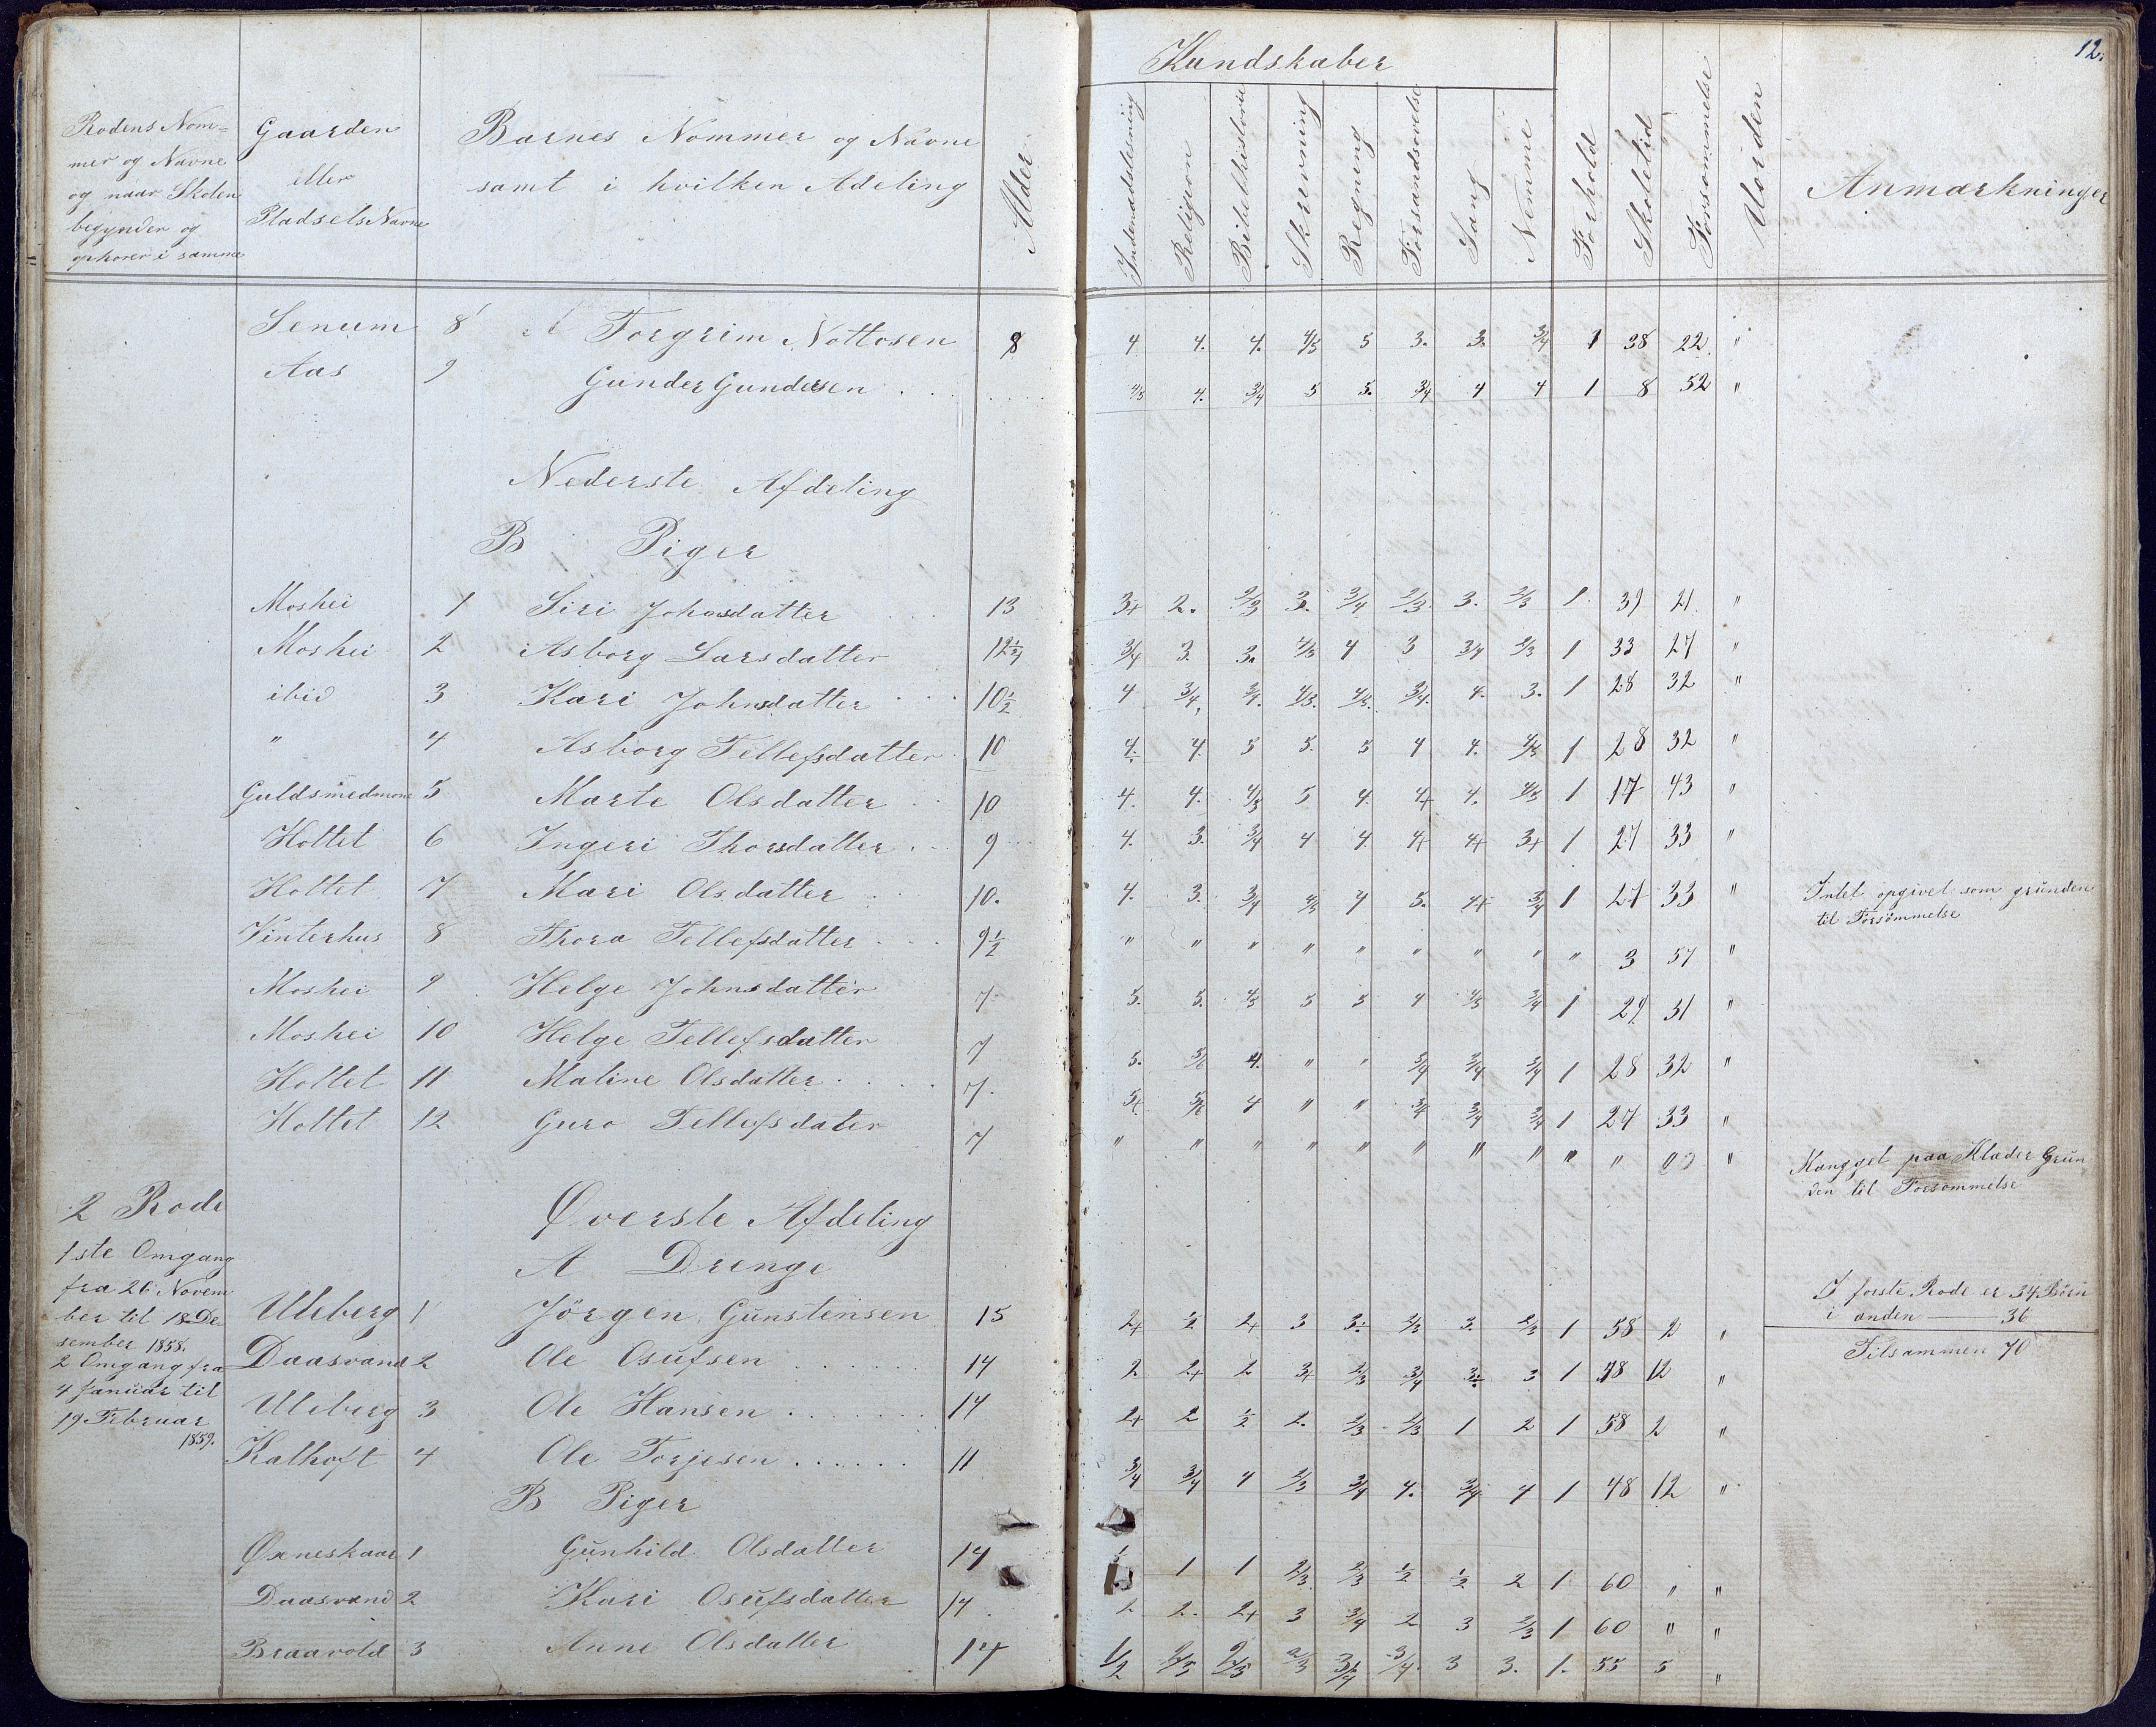 12.
Kundskaber
Rodens Nom=
mer og Navne
og naar Skolen
begynder og
ophorer i samme
Gaarden
eller
Pladsels Navne
Barnes Nommer og Navne
samt i hvilken Adeling
Alder
Indenadslesning
Religion
Bibelhistorie
Skrevning
Regning
Forsandsovelse
Sang
Nemme
Forhold
Skoletid
Forsommelse
Uorden
Anmærkninger
Senum 8 A Torgrim Nottosen 8 4 4. 4. 4/5 5 3. 3. 3/4 1 38 22. "
Aas 9 Gunder Gundersen 4/5 4. 3/4 5 5. 3/4 4 4 1 8 52 "
Nederste Afdeling
B Piger
Moshei 1 Siri Johnsdatter 13 3+ 2. 2/3 3. 3/4 2/3 3. 2/3 1 39 21 "
Moshei 2 Asborg Larsdatter 12 1/2 3/4 3. 3. 4/5 4 3 3/4 2/3 1 33 27 "
ibid 3 Kari Johnsdatter 10 1/2 4 3/4 3/4. 4/5. 4/5. 3/4. 4. 3. 1 28 32 "
" 4 Asborg Tellefsdatter 10 4. 4. 5 5. 5 4 4. 4/5 1 28 32 "
Guldsmedmone 5 Marte Olsdatter 10 4. 4. 4/5 5 4. 4+ 4. 4/5 1 17 43 "
Holtet 6 Ingeri Thorsdatter 9 4. 3. 3/4 4 4. 4+ 4+ 3+ 1 27 33 "
Holtet 7 Mari Olsdatter 10. 4. 3. 3/4 4/5 4 5. 4+ 3/4 1 27 33 "
Intet opgivet som grunden
til Forsömmelse
Vinterhus 8 Thora Tellefsdatter 9 1/2 " " " " " " " " " 3 57 "
Moshei 9 Helge Johnsdatter 7. 5. 5. 4/5 5 5 4 4/5 3/4 1 29 31 "
Moshei 10 Helge Tellefsdatter 7 5. 5/6 4. " " 3/4 3/4 3/4 1 28 32 "
Holtet 11 Maline Olsdatter 7. 5+ 5/6 4 " " 3/4 3/4 3/4 1 27 33 "
Holtet 12 Guro Tellefsdater 7 " " " " " " " " " "
Mangget paa Klæder Grun
den til Forsommelse
2 Rode
Överste Afdeling
1ste Omgang
A Drenge
fra 26 Novem
ber til 18 De
sember 1858.
2 Omgang fra
4 Januar til
19 Februar
1859.
I forste Rode er 34 Börn
i anden —— 36
Tilsammen 70
Uleberg 1 Jörgen Gunstensen 15 2+ 1/2 2+ 3 3. 2/3 3. 2/3 1 58 2 "
Daasvand 2 Ole Osufsen 14 2 2+ 2 3+ 2/3 3/4 3. 3 1 48 12 "
Uleberg 3 Ole Hansen 14 2+ 2 1/2 2. 2/3 2/3 1 2 1 58 2 "
Kalhoft 4 Ole Torjesen 11 3/4 3/4 4 2/3 3/4 4. 3/4 4 1 48 12 "
B Piger
Öxneskaar 1 Gunhild Olsdatter 14 1 1 2/3 2/3 1/2 1/2 2 1 60 " "
Daasvand 2 Kari Osufsdatter 14 2 2. 2+ 3 3/4 2 3 2/3 1 60 " "
Braavold 3 Anne Olsdatter 14 1/2 2/3 2/3 2/3 3/4 3/4. 3 3. 1. 55 5 "